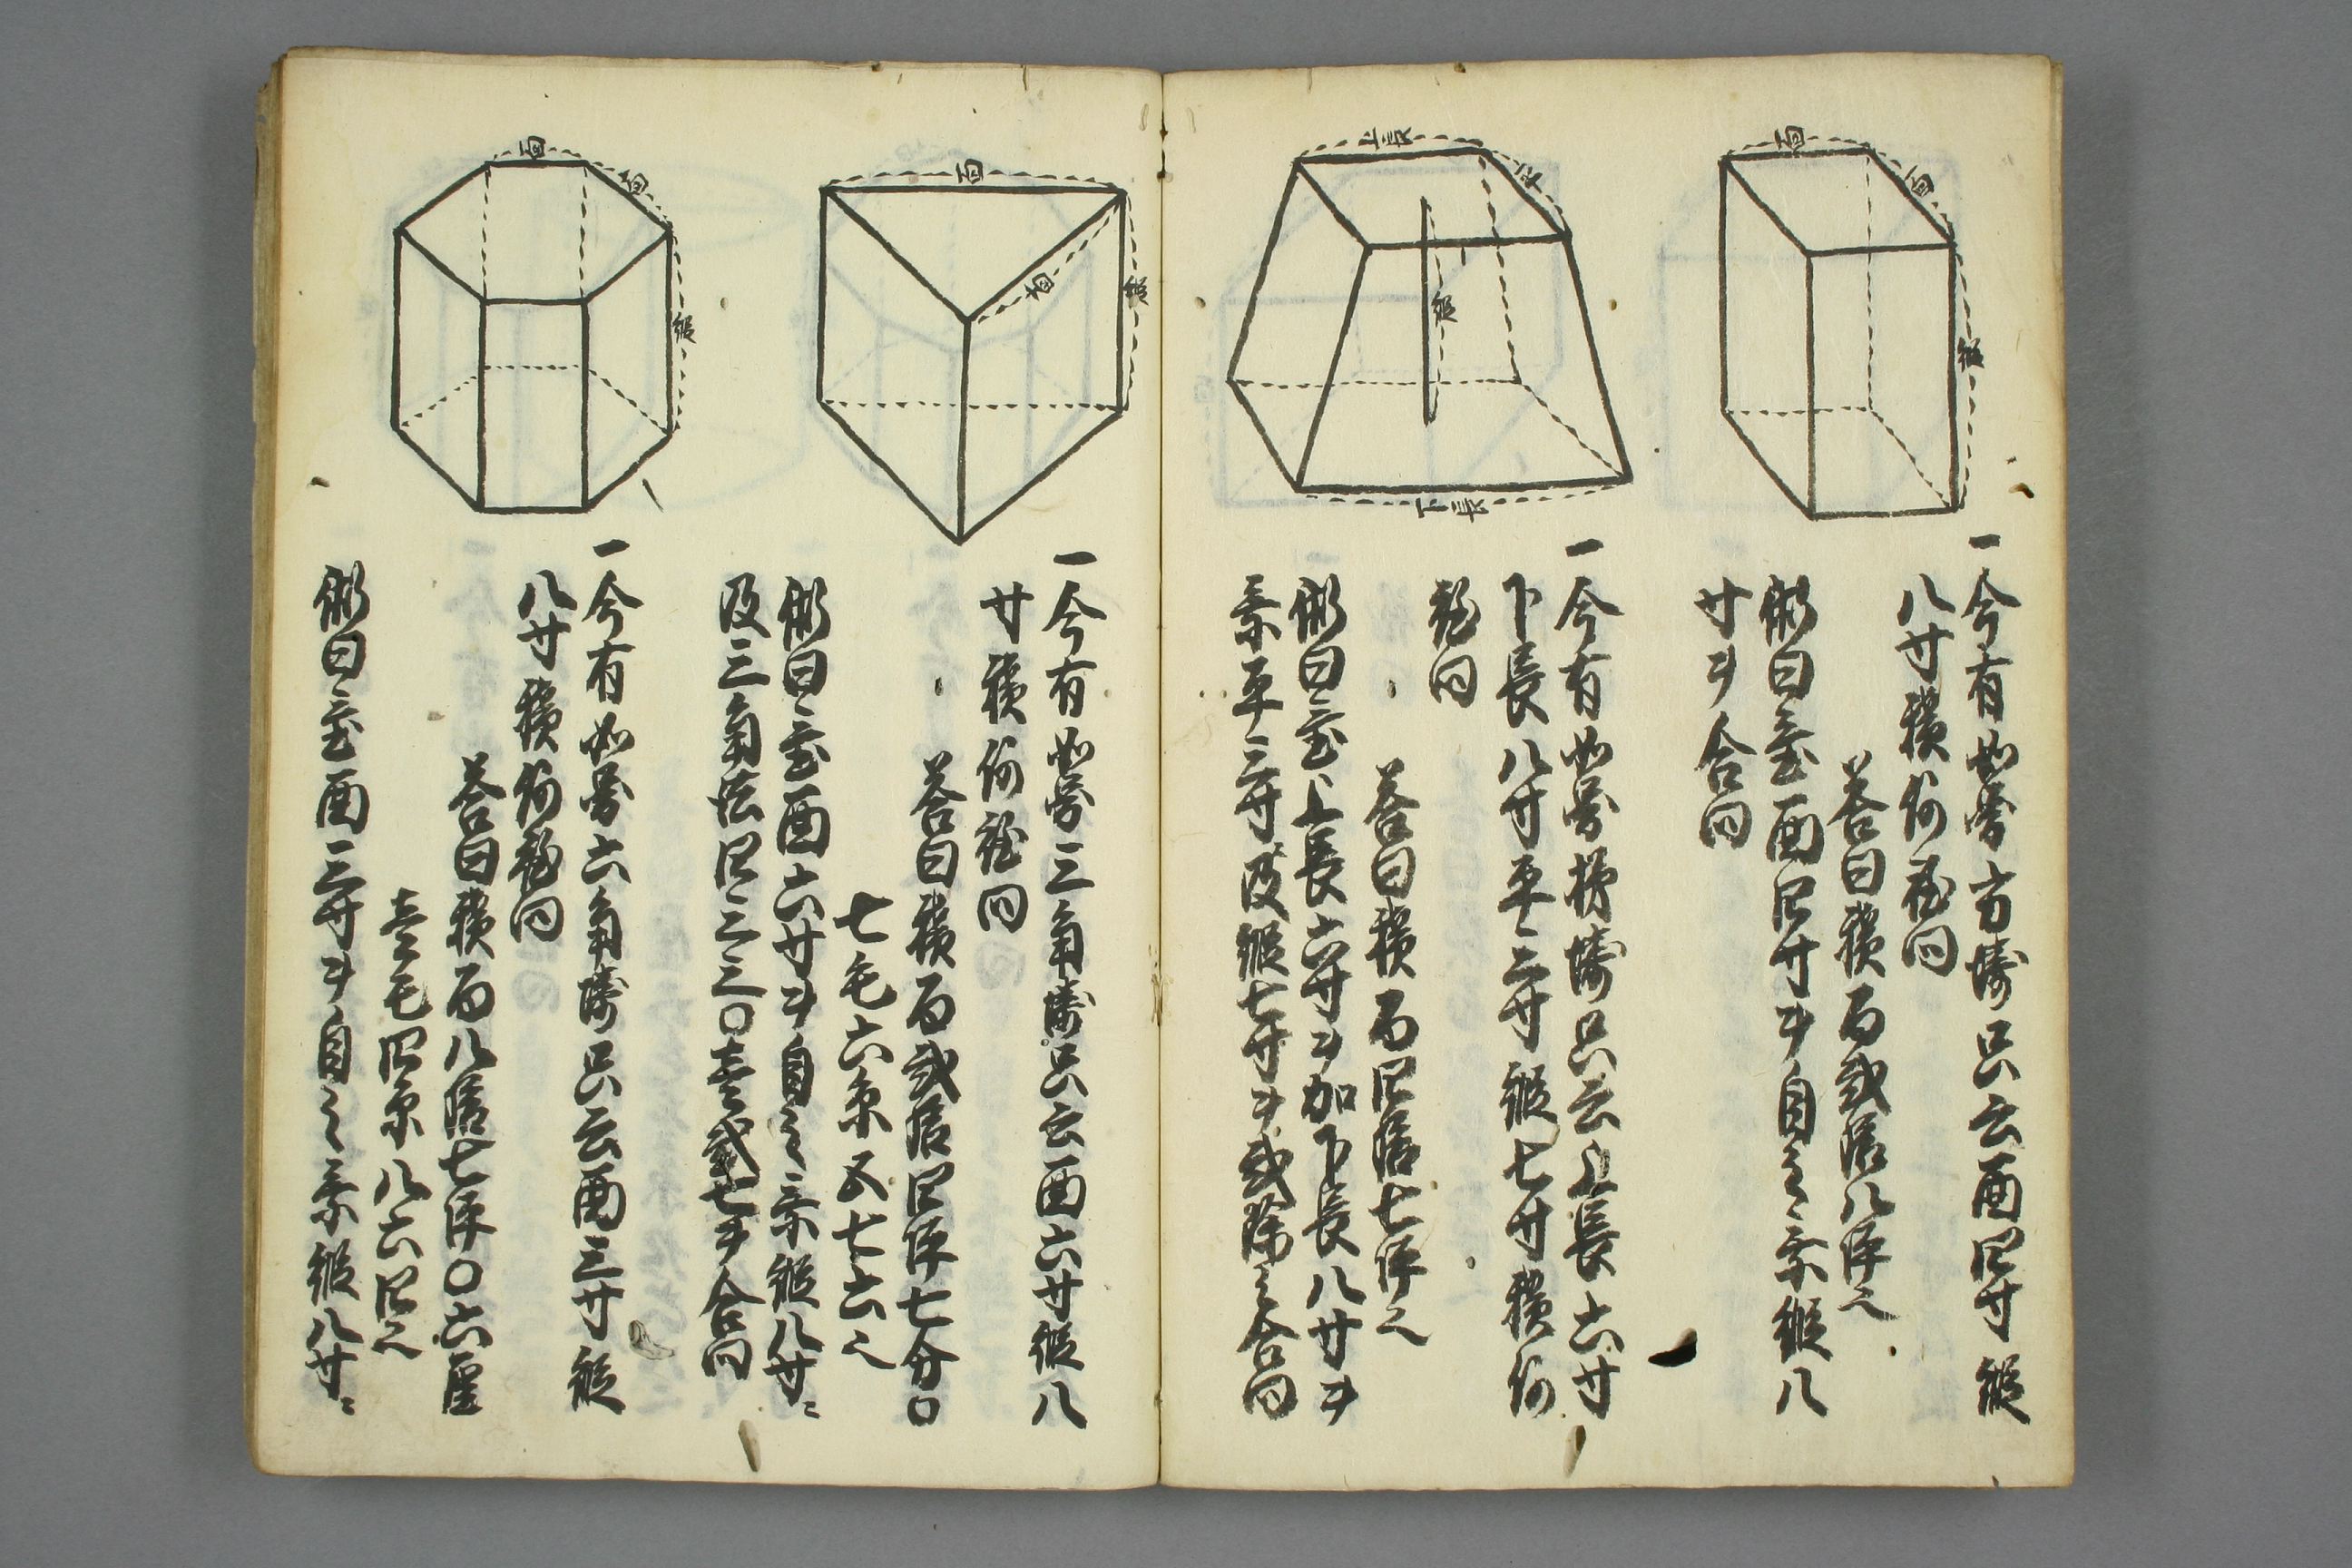 一今有如圖方壔只云面四寸縦
八寸積何程問
答曰積百弐拾八坪也
術曰置面四寸ヲ自之乗縦八
寸ヲ合問
一今有如圖 壔只云上長六寸
下長八寸平三寸縦七寸積何
程問
答曰積百四拾七坪也
術曰置上長六寸ヲ加下長八寸ヲ
乗平三寸及縦七寸ヲ弐除之合問
一今有如圖三角壔只云面六寸縦八
寸積何程問
答曰積百弐拾四坪七分〇
七毛六糸五七六也
術曰置面六寸ヲ自之乗縦八寸
及三角法四三三〇壱弐七ヲ合問
一今有如圖六角壔只云面三寸縦
八寸積何程問
答曰積百八拾七坪〇六厘
壱毛四糸八六四也
術曰置面三寸ヲ自之乗縦八寸
面
面
縦
上長
平
縦
下長
面
面
縦
面
面
縦